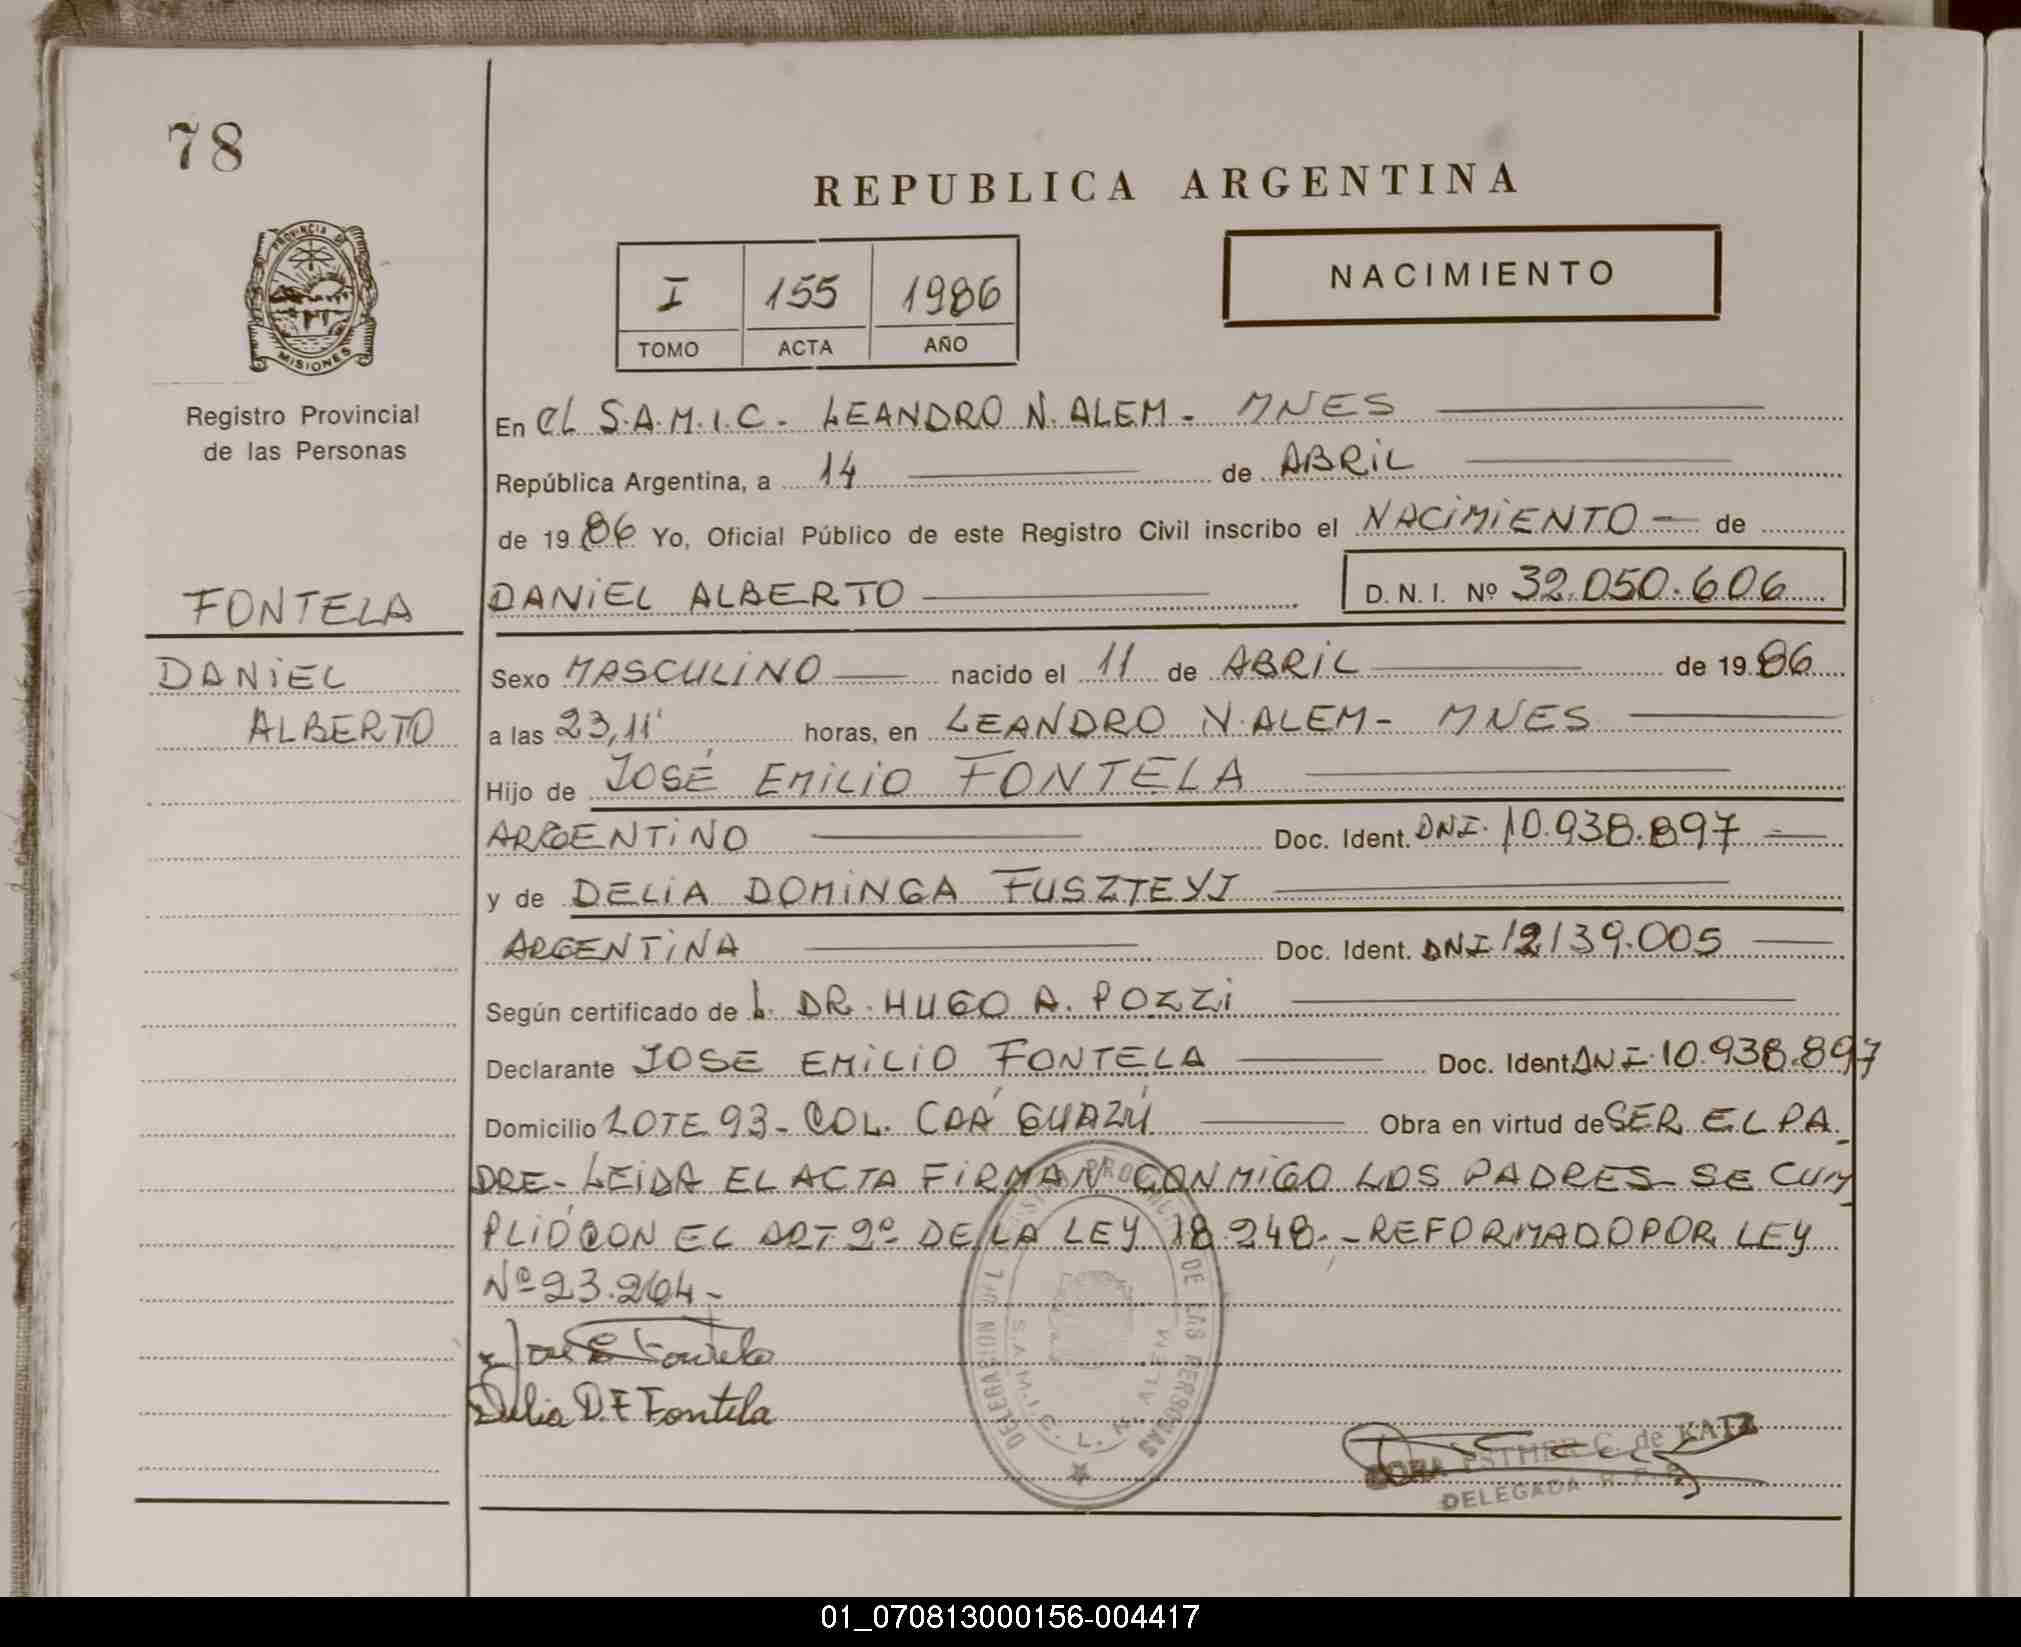 78
REPUBLICA ARGENTINA
PROVINCIA DE
MISIONES
I 155 1986
TOMO ACTA AÑO
NACIMIENTO
Registro Provincial
de las Personas
En el S.A.M.I.C - LEANDRO N. ALEM - MNES
República Argentina, a 14 de ABRIL
de 1986 Yo, Oficial Público de este Registro Civil inscribo el NACIMIENTO - de
FONTELA
DANIEL ALBERTO D.N.I. Nº 32.050.606
DANIEL
ALBERTO
Sexo MASCULINO nacido el 11 de ABRIL de 1986
a las 23,11' horas, en LEANDRO N. ALEM - MNES
Hijo de JOSÉ EMILIO FONTELA
ARGENTINO Doc. Ident. DNI. 10.938.897
y de DELIA DOMINGA FUSZTEYI
ARGENTINA Doc. Ident. DNI 12139.005
Según certificado de DR. HUGO A. POZZI
Declarante JOSE EMILIO FONTELA Doc. Ident DNI. 10.938.897
Domicilio LOTE 93 - COL. CAÁ GUAZÚ Obra en virtud de SER EL PA
DRE - LEIDA EL ACTA FIRMAN CONMIGO LOS PADRES - SE CUM
PLIÓ CON EL ART 2º DE LA LEY 18.248. - REFORMADO POR LEY
Nº 23.264 -
José E Fontela
Delia D. F Fontela
DELEGACION DEL REGISTRO PROVINCIAL DE LAS PERSONAS
S.A.M.I.C. L. N. ALEM
DORA ESTHER C. de KATZ
DELEGADA R. P. P.
01_070813000156-004417